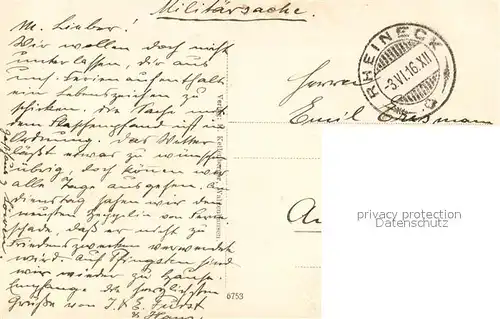 Militärsache.
M. Lieber!
Wir wollen doch nicht
unterlassen, dir aus
uns. Ferienaufenthalte
ein Lebenszeichen zu
schicken. Die Sache mit
dem Flaschenpfand ist in
Ordnung. Das Wetter
läßt etwas zu wünschen
übrig, doch können wir
alle Tage ausgehen. Am
Dienstag sahen wir den
neusten Zeppelin von Ferne
schade, daß er nicht zu
Friedenszwecken verwendet
wird. Auf Pfingsten sind
wir wieder zu Hause.
Empfange die herzlichsten
Grüße von J. & E. Fürst
& Hans.
RHEINECK
-3.VI.16.XII
Herren
Emil
6753
privacy protection watermark